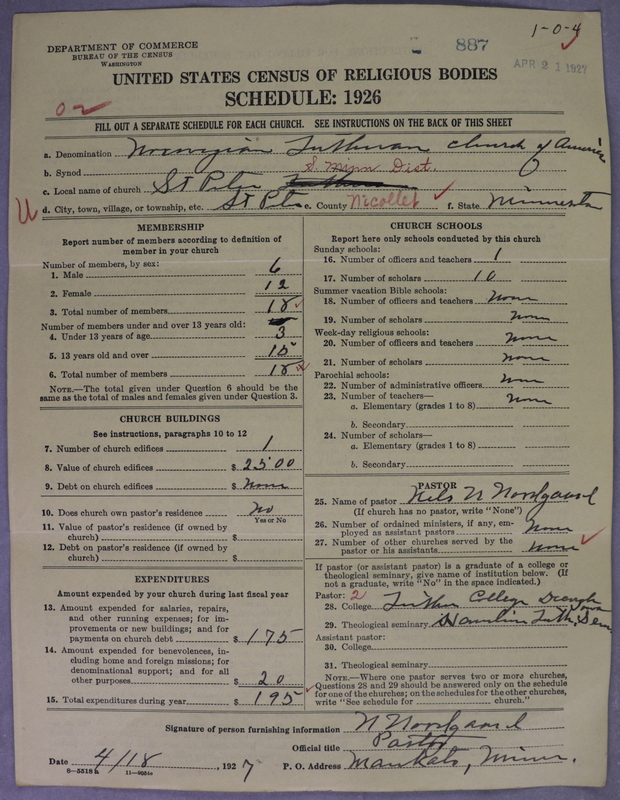 1-0-4
DEPARTMENT OF COMMERCE
BUREAU OF THE CENSUS
WASHINGTON
887
APR 21 1927
UNITED STATES CENSUS OF RELIGIOUS BODIES
SCHEDULE: 1926
FILL OUT A SEPARATE SCHEDULE FOR EACH CHURCH. SEE INSTRUCTIONS ON THE BACK OF THIS SHEET
a. Denomination Norwegian Lutheran Church of America
b. Synod S. Minn Dist.
c. Local name of church St Peter
d. City, town, village, or township, etc. St Pt e. County Nicollet f. State Minnesota
MEMBERSHIP
Report number of members according to definition of
member in your church
Number of members, by sex:
1. Male 6
2. Female 12
3. Total number of members 18
Number of members under and over 13 years old:
4. Under 13 years of age 3
5. 13 years old and over 15
6. Total number of members 18
NOTE.—The total given under Question 6 should be the
same as the total of males and females given under Question 3.
CHURCH BUILDINGS
See instructions, paragraphs 10 to 12
7. Number of church edifices 1
8. Value of church edifices $ 2500
9. Debt on church edifices $ None
10. Does church own pastor's residence No
Yes or No
11. Value of pastor's residence (if owned by
church) $
12. Debt on pastor's residence (if owned by
church) $
EXPENDITURES
Amount expended by your church during last fiscal year
13. Amount expended for salaries, repairs,
and other running expenses; for im-
provements or new buildings; and for
payments on church debt $ 175
14. Amount expended for benevolences, in-
cluding home and foreign missions; for
denominational support; and for all
other purposes $ 20
15. Total expenditures during year $ 195
CHURCH SCHOOLS
Report here only schools conducted by this church
Sunday schools:
16. Number of officers and teachers 1
17. Number of scholars 10
Summer vacation Bible schools:
18. Number of officers and teachers None
19. Number of scholars None
Week-day religious schools:
20. Number of officers and teachers None
21. Number of scholars None
Parochial schools:
22. Number of administrative officers None
23. Number of teachers—
a. Elementary (grades 1 to 8) None
b. Secondary
24. Number of scholars—
a. Elementary (grades 1 to 8)
b. Secondary
PASTOR
25. Name of pastor Nels N Nordgaard
(If church has no pastor, write "None")
26. Number of ordained ministers, if any, em-
ployed as assistant pastors None
27. Number of other churches served by the
pastor or his assistants None
If pastor (or assistant pastor) is a graduate of a college or
theological seminary, give name of institution below. (If
not a graduate, write "No" in the space indicated.)
Pastor: 2
28. College Luther College Decorah Iowa
29. Theological seminary Hamline Luth. Sem
Assistant pastor:
30. College
31. Theological seminary
NOTE.—Where one pastor serves two or more churches,
Questions 28 and 29 should be answered only on the schedule
for one of the churches; on the schedules for the other churches,
write "See schedule for church."
Signature of person furnishing information N Nordgaard
Official title Pastor
Date 4/18, 1927 P. O. Address Mankato, Minn.
8—5518a